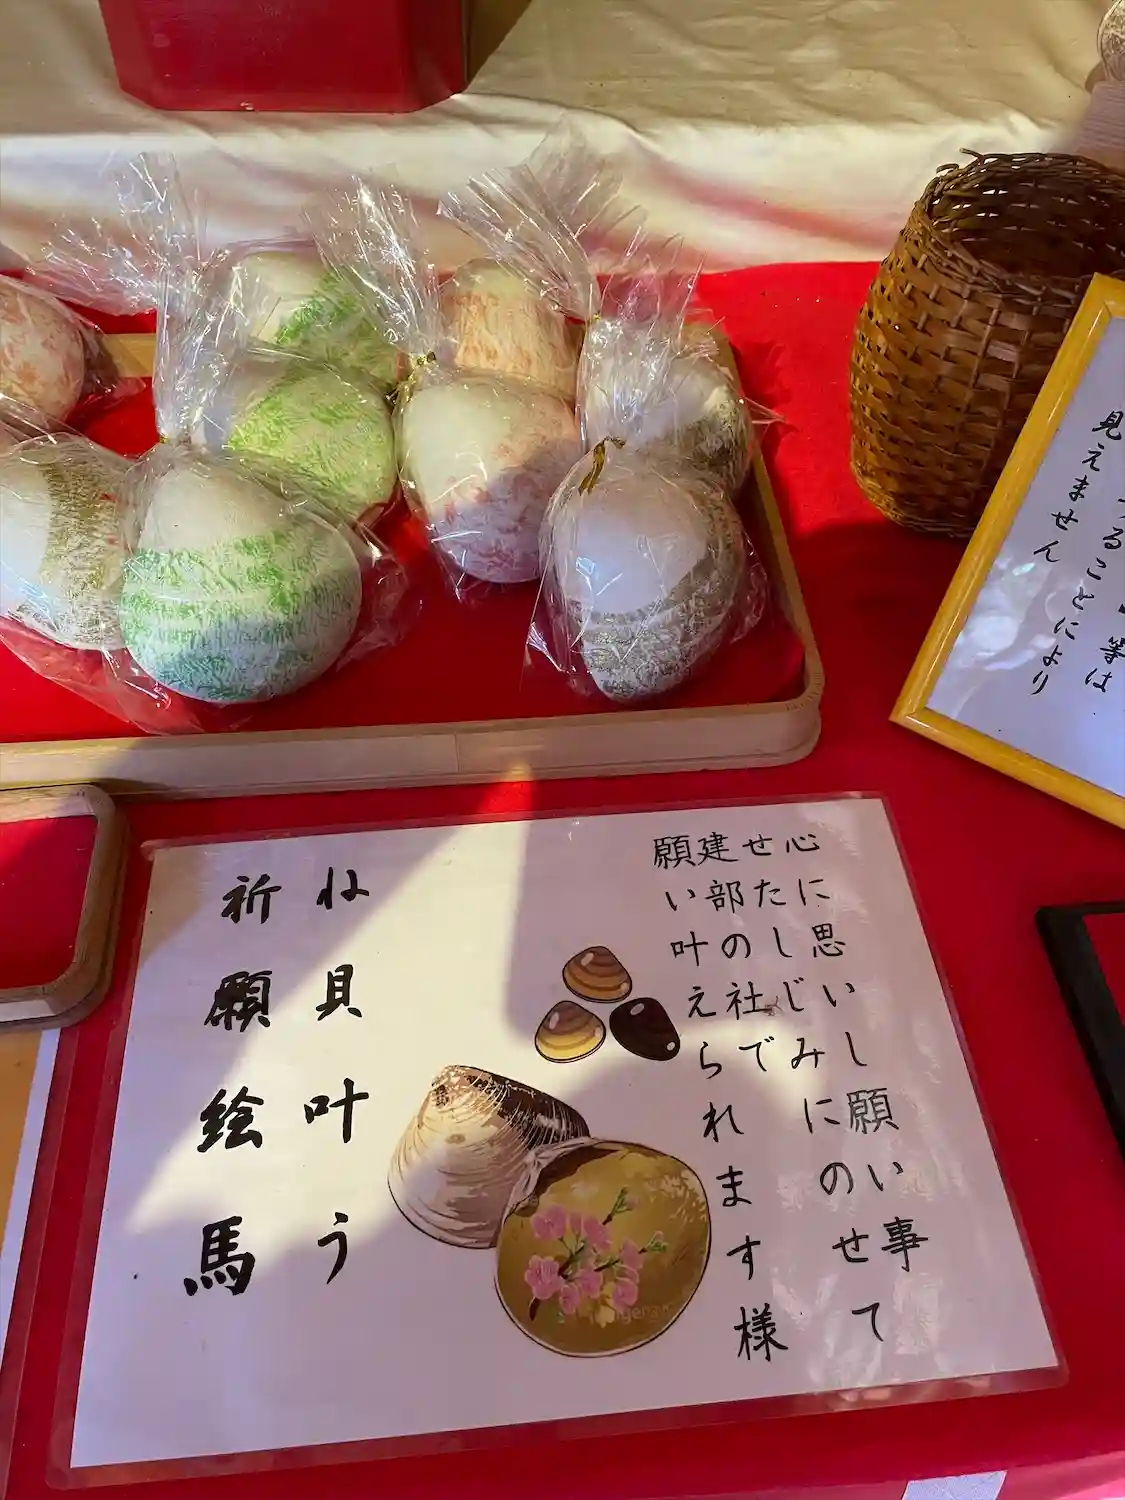 等は
ることにより
見えません
心に思いし願い事
せたしじみにのせて
建部の社で
願い叶えられます様
ね貝叶う
祈願絵馬